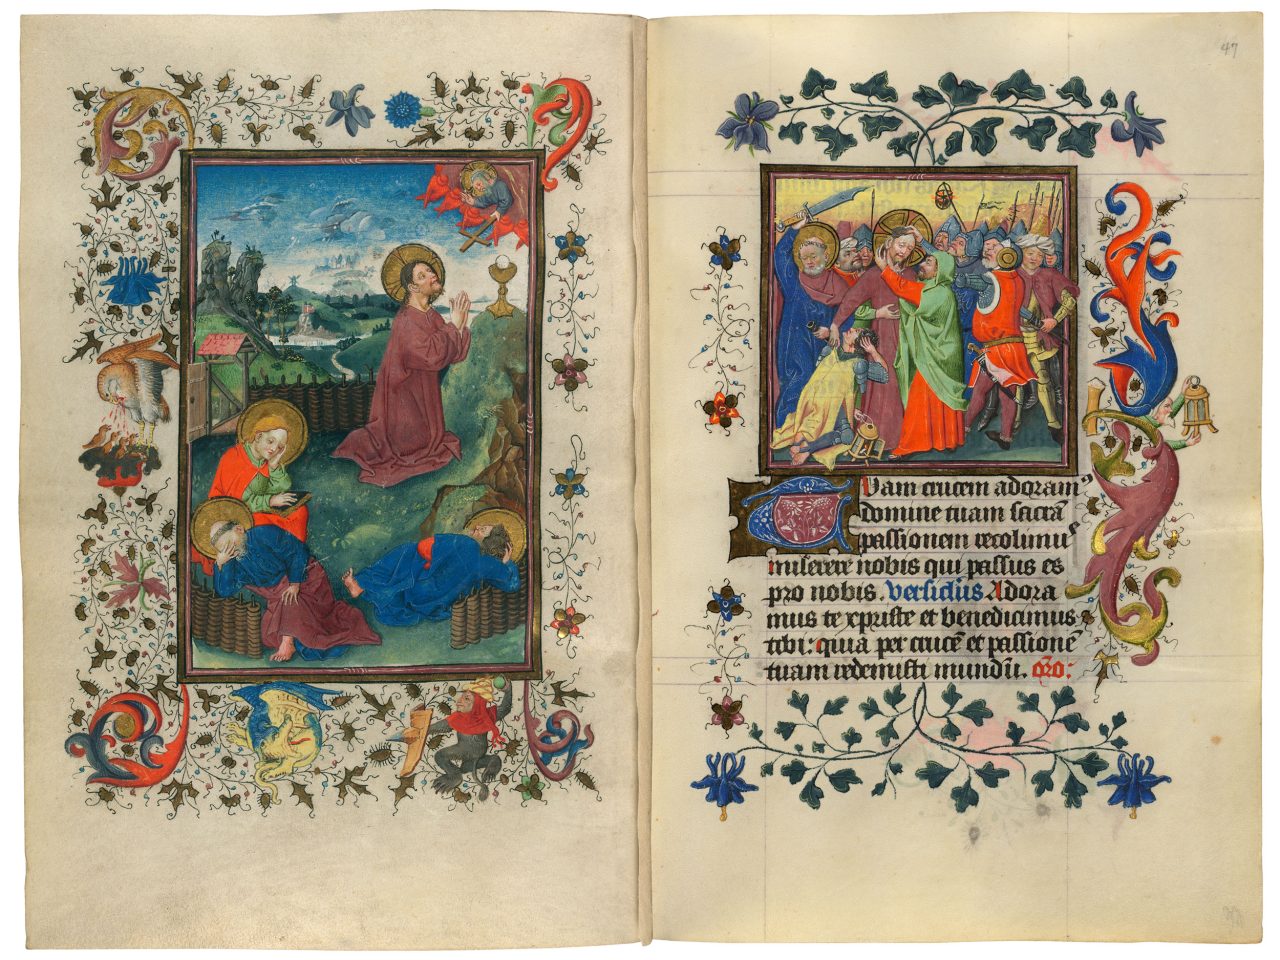 47
Tuam crucem adoram⁹
domine tuam sacrā
passionem recolimus
miserere nobis qui passus es
pro nobis. Versiclus Adora
mus te xpriste et benedicimus
tibi: quia per crucē et passionē
tuam redemisti mundū. oro: